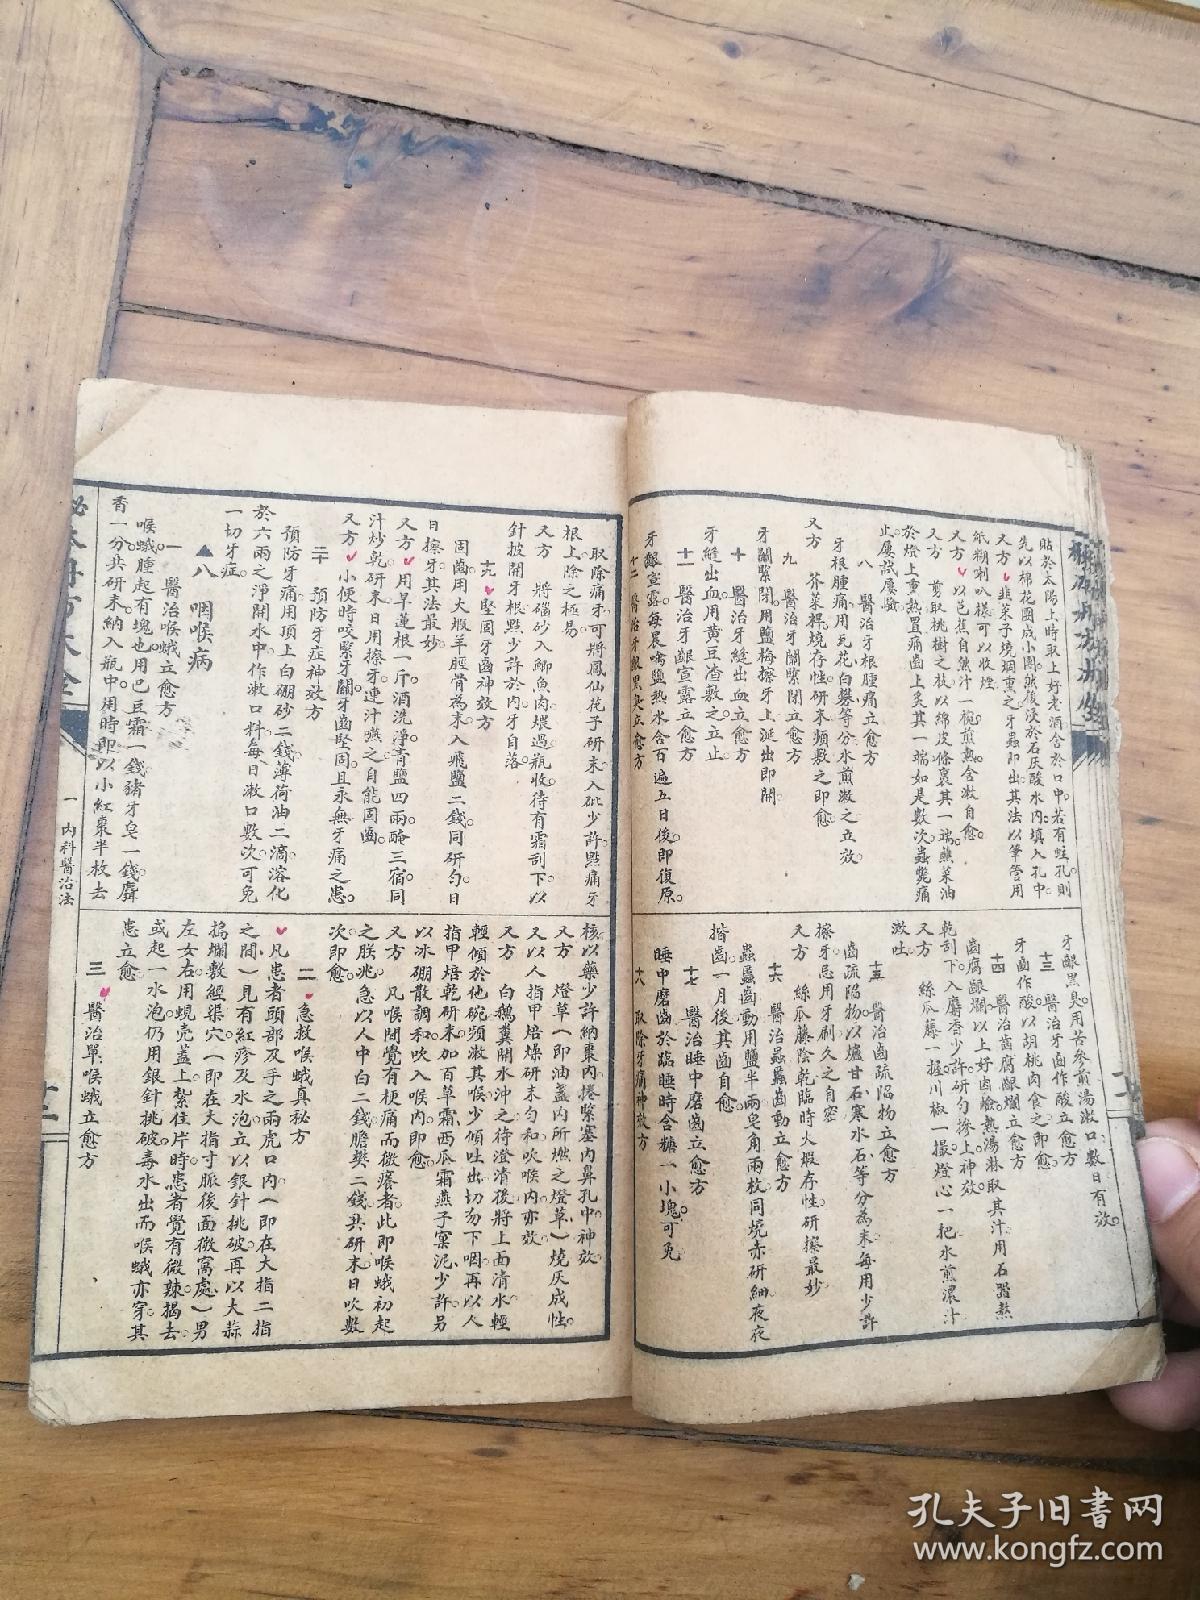 貼於太陽上時取上好老酒含於口中若有蛀孔則
先以棉花團成小團然後浸於石灰酸水內填入孔中
又方 韭菜子燒烟熏之牙蟲即出其法以筆管用
紙糊喇叭樣可以收煙
又方 以芭蕉自然汁一椀煎熱含漱自愈
又方 剪取桃樹之枝以綿皮條裹其一端蘸菜油
於燈上熏熱置痛齒上炙其一端如是數次蟲斃痛
止屢試屢驗
八 醫治牙根腫痛立愈方
牙根腫痛用瓦花白礬等分水煎漱之立效
又方 芥菜稈燒存性研末頻敷之即愈
九 醫治牙關緊閉立愈方
牙關緊閉用鹽梅擦牙上涎出即開
十 醫治牙縫出血立愈方
牙縫出血用黄豆渣敷之立止
十一 醫治牙齦宣露立愈方
牙齦宣露每晨噙鹽熱水含百遍五日後即復原
十二 醫治牙齦黑臭立愈方
牙齦黑臭用苦參煎湯漱口數日有效
十三 醫治牙齒作酸立愈方
牙齒作酸以胡桃肉食之即愈
十四 醫治齒腐齦爛立愈方
齒腐齦爛以上好鹼熱湯淋取其汁用石器熬
乾刮下入麝香少許研勻摻上神效
又方 絲瓜藤一握川椒一撮燈心一把水煎濃汁
漱吐
十五 醫治齒疏陷物立愈方
齒疏陷物以爐甘石寒水石等分為末每用少許
擦牙忌用牙刷久之自密
又方 絲瓜藤陰乾臨時火煅存性研擦最妙
十六 醫治蟲䘌齒動立愈方
蟲䘌齒動用鹽半兩皂角兩枚同燒赤研細夜夜
揩齒一月後其齒自愈
十七 醫治睡中磨齒立愈方
睡中磨齒於臨睡時含糖一小塊可免
十八 取除牙痛神效方
取除痛牙可將鳳仙花子研末入砒少許點痛牙
根上除之極易
又方 將硇砂入鯽魚肉煨過瓶收待有霜刮下以
針披開牙根點少許於內牙自落
十九 堅固牙齒神效方
固齒用大叚羊脛骨為末入飛鹽二錢同研勻日
日擦牙其法最妙
又方 用旱蓮根一斤酒洗淨青鹽四兩醃三宿同
汁炒乾研末日用擦牙連汁嚥之自能固齒
又方 小便時咬緊牙關牙齒堅固且永無牙痛之患
二十 預防牙症神效方
預防牙痛用頂上白硼砂二錢薄荷油二滴溶化
於六兩之淨開水中作漱口料每日漱口數次可免
一切牙症
▲八 咽喉病
一 醫治喉蛾立愈方
喉蛾腫起有塊也用巴豆霜一錢豬牙皂一錢麝
香一分共研末納入瓶中用時即以小紅棗半枚去
核以藥少許納棗內捲緊塞內鼻孔中神效
又方 燈草(即油盞內所燃之燈草)燒灰成性
又以人指甲焙燥研末勻和吹喉內亦效
又方 白鵝糞開水沖之待澄清後將上面清水輕
輕傾於他碗頻漱其喉少傾吐出切勿下咽再以人
指甲焙乾研末加百草霜西瓜霜燕子窠泥少許另
以冰硼散調和吹入喉內即愈
又方 凡喉間覺有梗痛而微癢者此即喉蛾初起
之朕兆急以人中白二錢膽礬二錢共研末日吹數
次即愈
二 急救喉蛾真秘方
凡患者頭部及手之兩虎口內(即在大指二指
之間)見有紅疹及水泡立以銀針挑破再以大蒜
搗爛敷經渠穴(即在大指寸脈後面微窩處)男
左女右用蜆壳蓋上紮住片時患者覺有微辣揭去
或起一水泡仍用銀針挑破毒水出而喉蛾亦穿其
患立愈
三 醫治單喉蛾立愈方
秘本丹方大全
一 內科醫治法
十二
孔夫子旧书网
www.kongfz.com